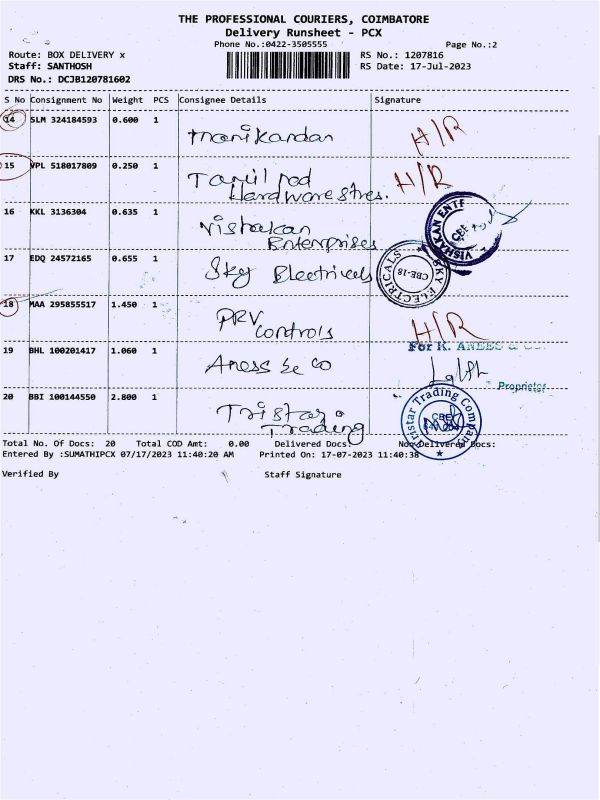 THE PROFESSIONAL COURIERS, COIMBATORE
Delivery Runsheet - PCX
Phone No.:0422-3505555 Page No.:2
Route: BOX DELIVERY x RS No.: 1207816
Staff: SANTHOSH RS Date: 17-Jul-2023
DRS No.: DCJB120781602
S No Consignment No Weight PCS Consignee Details Signature
14 SLM 324184593 0.600 1
manikandan H/R
15 VPL 518017809 0.250 1
Tamil nod H/R
Hardware stres.
16 KKL 3136304 0.635 1
Vishakan VISHAKAN ENTE
Enterprises CBE
17 EDQ 24572165 0.655 1
Sky Electricals SKY ELECTRICALS
CBE-18
18 MAA 295855517 1.450 1
PRV H/R
Controls
19 BHL 100201417 1.060 1 For K. ANEES & CO.
Aness se co
Proprietor
20 BBI 100144550 2.800 1
Tristar Tristar Trading Company
Trading CBE
Total No. Of Docs: 20 Total COD Amt: 0.00 Delivered Docs: Non Delivered Docs:
Entered By :SUMATHIPCX 07/17/2023 11:40:20 AM Printed On: 17-07-2023 11:40:38
Verified By Staff Signature